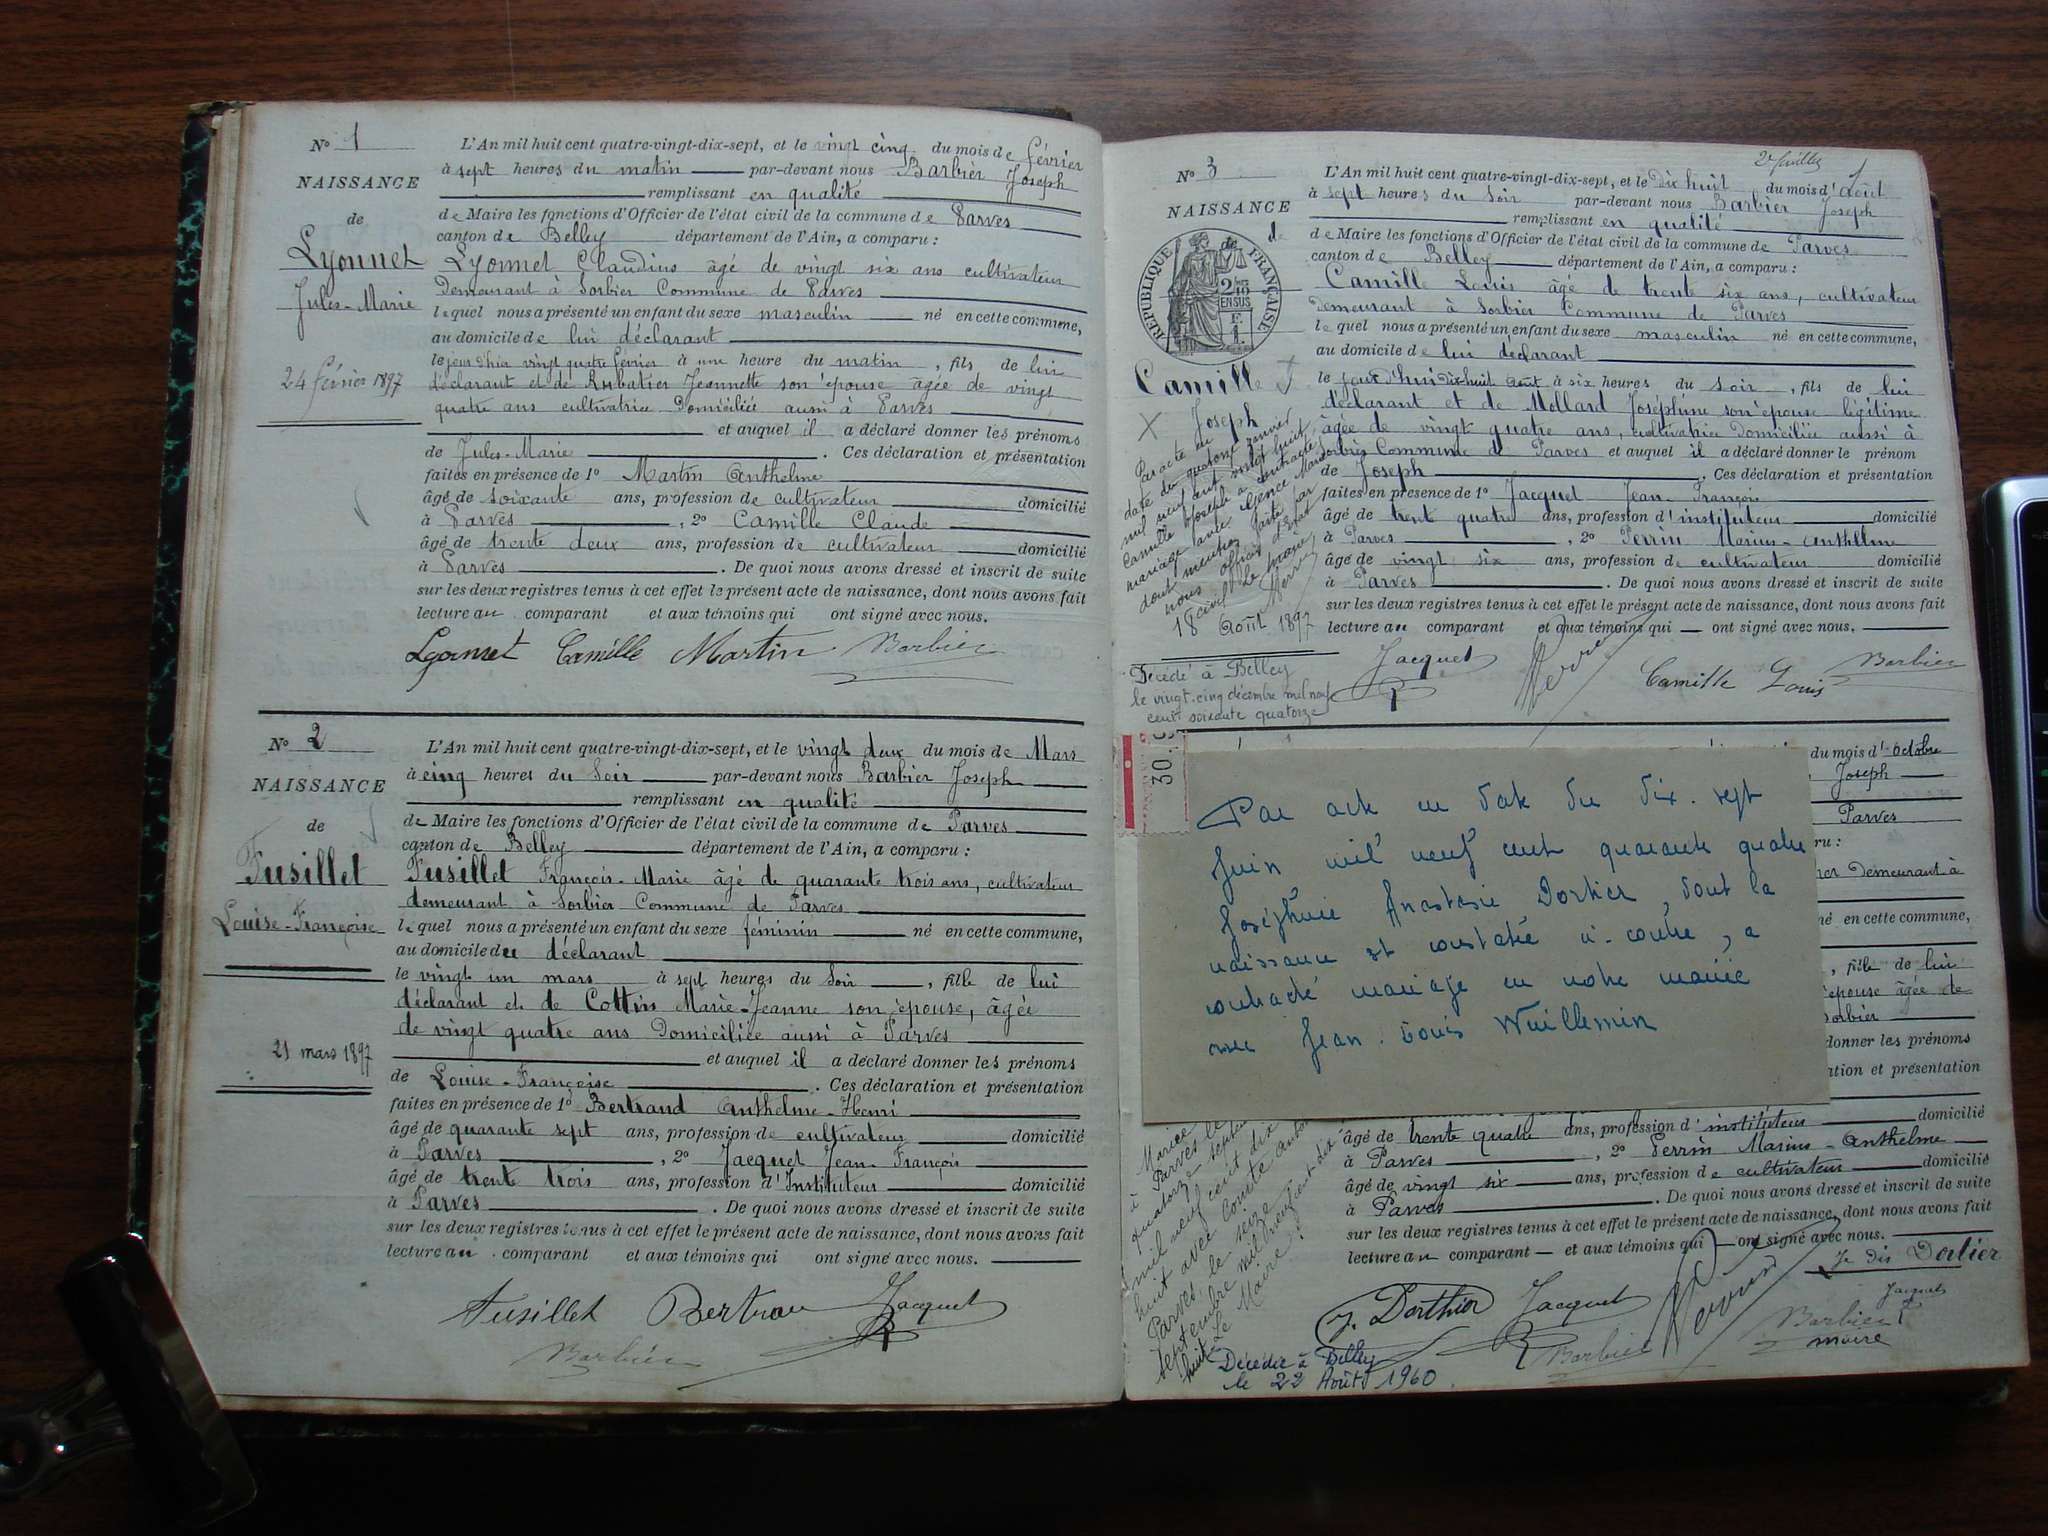 Nº 1
NAISSANCE
de
Lyonnet
Jules-Marie
24 février 1897
L'An mil huit cent quatre-vingt-dix-sept, et le vingt cinq du mois de février
à sept heures du matin par-devant nous Barbier Joseph
remplissant en qualité
de Maire les fonctions d'Officier de l'état civil de la commune de Parves
canton de Belley département de l'Ain, a comparu :
Lyonnet Claudius âgé de vingt six ans cultivateur
demeurant à Sorbier Commune de Parves
lequel nous a présenté un enfant du sexe masculin né en cette commune,
au domicile de lui déclarant
le jour d'hier vingt quatre février à une heure du matin, fils de lui
déclarant et de Rubatier Jeannette son épouse âgée de vingt
quatre ans cultivatrice Domiciliée aussi à Parves
et auquel il a déclaré donner les prénoms
de Jules-Marie. Ces déclaration et présentation
faites en présence de 1º Martin Anthelme
âgé de soixante ans, profession de cultivateur domicilié
à Parves, 2º Camille Claude
âgé de trente deux ans, profession de cultivateur domicilié
à Parves. De quoi nous avons dressé et inscrit de suite
sur les deux registres tenus à cet effet le présent acte de naissance, dont nous avons fait
lecture au comparant et aux témoins qui ont signé avec nous.
Lyonnet Camille Martin Barbier
Nº 2
NAISSANCE
de
Fusillet
Louise-Françoise
21 mars 1897
L'An mil huit cent quatre-vingt-dix-sept, et le vingt deux du mois de Mars
à cinq heures du Soir par-devant nous Barbier Joseph
remplissant en qualité
de Maire les fonctions d'Officier de l'état civil de la commune de Parves
canton de Belley département de l'Ain, a comparu :
Fusillet François-Marie âgé de quarante trois ans, cultivateur
demeurant à Sorbier Commune de Parves
lequel nous a présenté un enfant du sexe féminin né en cette commune,
au domicile de déclarant
le vingt un mars à sept heures du Soir, fille de lui
déclarant et de Cottin Marie-Jeanne son épouse, âgée
de vingt quatre ans Domiciliée aussi à Parves
et auquel il a déclaré donner les prénoms
de Louise-Françoise. Ces déclaration et présentation
faites en présence de 1º Bertrand Anthelme-Henri
âgé de quarante sept ans, profession de cultivateur domicilié
à Parves, 2º Jacquet Jean-François
âgé de trente trois ans, profession d'Instituteur domicilié
à Parves. De quoi nous avons dressé et inscrit de suite
sur les deux registres tenus à cet effet le présent acte de naissance, dont nous avons fait
lecture au comparant et aux témoins qui ont signé avec nous.
Fusillet Bertran Jacquet
Barbier
2e feuillet
Nº 3
NAISSANCE
de
RÉPUBLIQUE FRANÇAISE
EN SUS
Camille
Joseph
Par acte en
date du quatorze janvier
mil neuf cent vingt huit
Camille Joseph a contracté
mariage avec
dont mention faite par
nous officier d'Etat
civil Le maire
18 Août 1897
Décédé à Belley
le vingt-cinq décembre mil neuf
cent soixante quatorze
L'An mil huit cent quatre-vingt-dix-sept, et le dix huit du mois d'août
à sept heures du Soir par-devant nous Barbier Joseph
remplissant en qualité
de Maire les fonctions d'Officier de l'état civil de la commune de Parves
canton de Belley département de l'Ain, a comparu :
Camille Louis âgé de trente six ans, cultivateur
demeurant à Sorbier Commune de Parves
lequel nous a présenté un enfant du sexe masculin né en cette commune,
au domicile de lui déclarant
le jour d'hui dix-huit août à six heures du soir, fils de lui
déclarant et de Mollard Joséphine son épouse légitime
âgée de vingt quatre ans, cultivatrice domiciliée aussi à
Sorbier Commune de Parves et auquel il a déclaré donner le prénom
de Joseph. Ces déclaration et présentation
faites en présence de 1º Jacquet Jean François
âgé de trent quatre ans, profession d'instituteur domicilié
à Parves, 2º Perrin Marius-Anthelme
âgé de vingt six ans, profession de cultivateur domicilié
à Parves. De quoi nous avons dressé et inscrit de suite
sur les deux registres tenus à cet effet le présent acte de naissance, dont nous avons fait
lecture au comparant et aux témoins qui ont signé avec nous.
Jacquet Perrin Camille Louis Barbier
30
Par acte en date du dix-sept
Juin mil neuf cent quarante quatre
Joséphine Anastasie Dortier, dont la
naissance est constatée ci-contre, a
contracté mariage en notre mairie
avec Jean-Louis Wuillemin
du mois d'octobre
Joseph
Parves
ru :
demeurant à
né en cette commune,
, fille de lui
épouse âgée de
Sorbier
donner les prénoms
ation et présentation
domicilié
âgé de trente quatre ans, profession d'instituteur
à Parves, 2º Perrin Marius-Anthelme
âgé de vingt six ans, profession de cultivateur domicilié
à Parves. De quoi nous avons dressé et inscrit de suite
sur les deux registres tenus à cet effet le présent acte de naissance, dont nous avons fait
lecture au comparant et aux témoins qui ont signé avec nous.
Je dis Dortier
J. Dorthier Jacquet Perrin
Barbier Jacquet
Barbier
maire
Mariée
à Parves le
quatorze septem
mil neuf cent dix
huit avec Comte
Parves, le seize
septembre mil neuf cent dix
huit Le Maire
Décédée à Belley
le 22 Août 1960